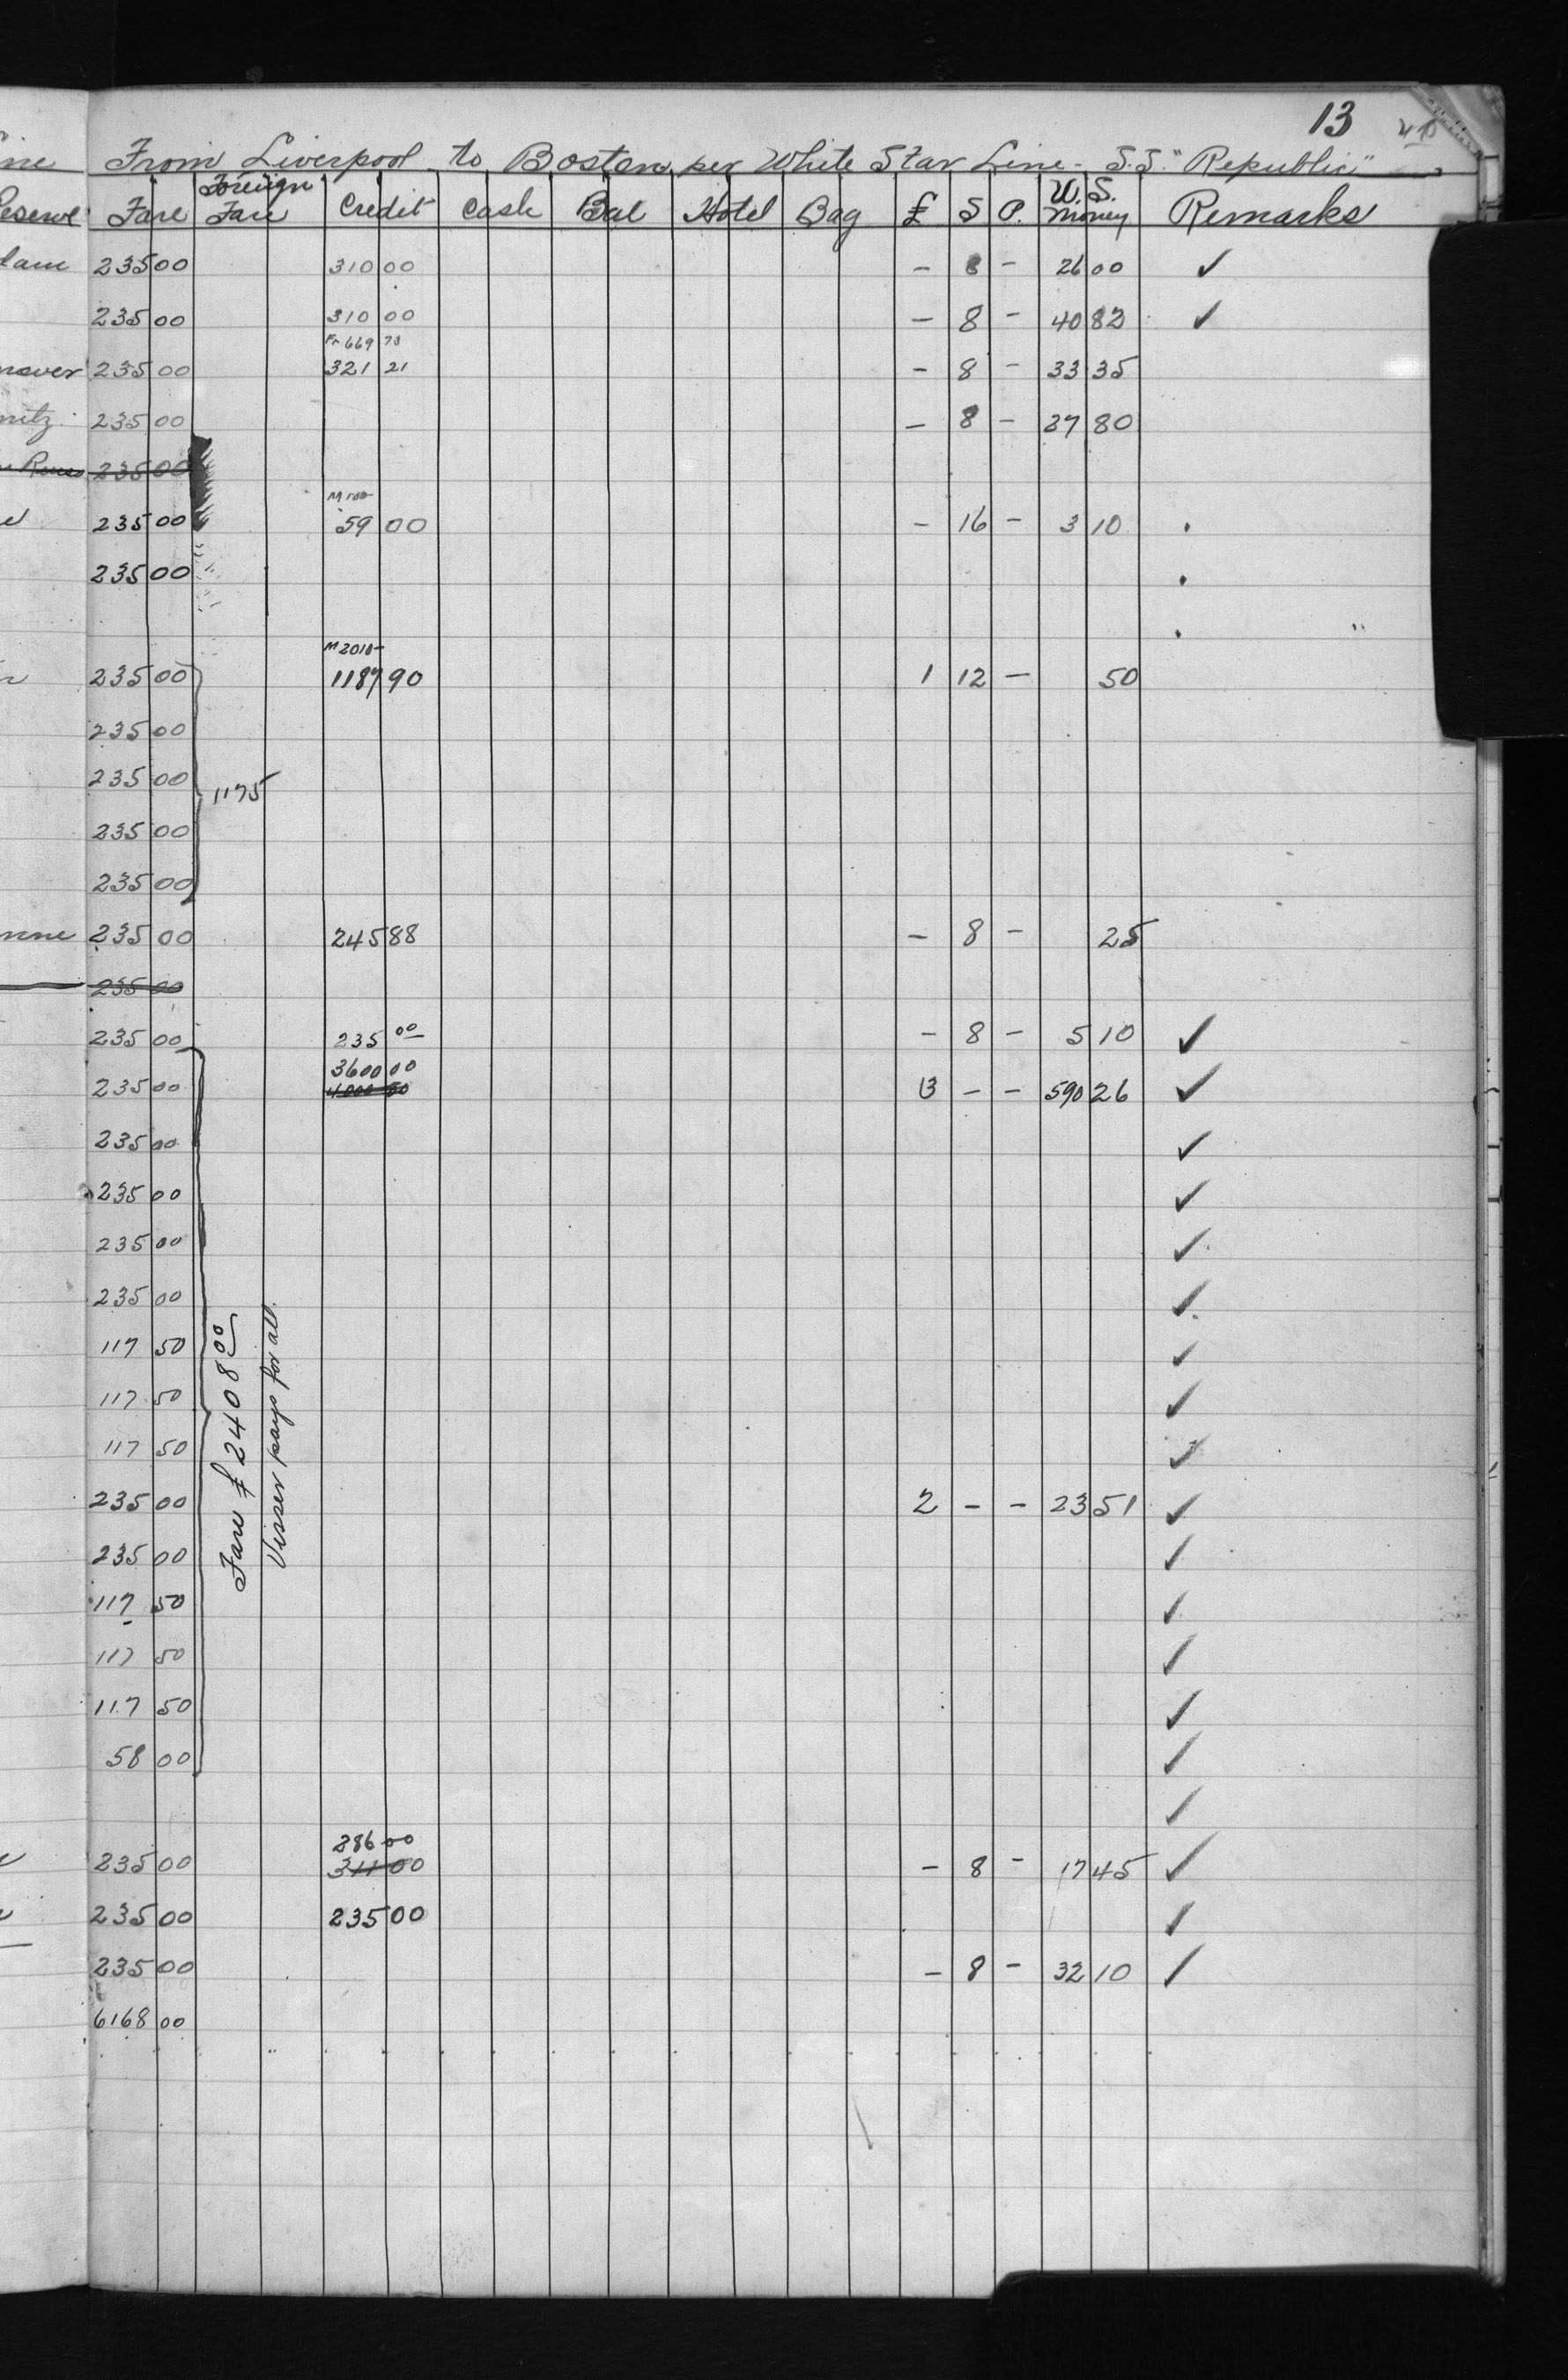 13
ine From Liverpool to Boston per White Star Line - S.S. "Republic"
Reserve Fare Foreign Fare Credit Cash Bal Hotel Bag £ S P. U.S. Money Remarks
dam 235 00 310 00 - 8 - 26 00 ✓
235 00 310 00 - 8 - 40 82 ✓
Fr 669 70
nover 235 00 321 21 - 8 - 33 35
nitz 235 00 - 8 - 37 80
235 00
M 100-
235 00 59 00 - 16 - 3 10
235 00
M 2010-
235 00 1187 90 1 12 - 50
235 00
235 00 1175
235 00
235 00
enne 235 00 245 88 - 8 - 25
235 00
235 00 235 00 - 8 - 5 10 ✓
3600 00
235 00 4000 00 13 - - 590 26 ✓
235 00 ✓
235 00 ✓
235 00 ✓
235 00 ✓
117 50 ✓
117 50 ✓
117 50 ✓
235 00 2 - - 23 51 ✓
235 00 ✓
117 50 ✓
117 50 ✓
117 50 ✓
58 00 ✓
Fare £ 2408 00
Visser pays for all.
✓
286 00
235 00 311 00 - 8 - 17 45 ✓
235 00 235 00 ✓
235 00 - 8 - 32 10 ✓
6168 00